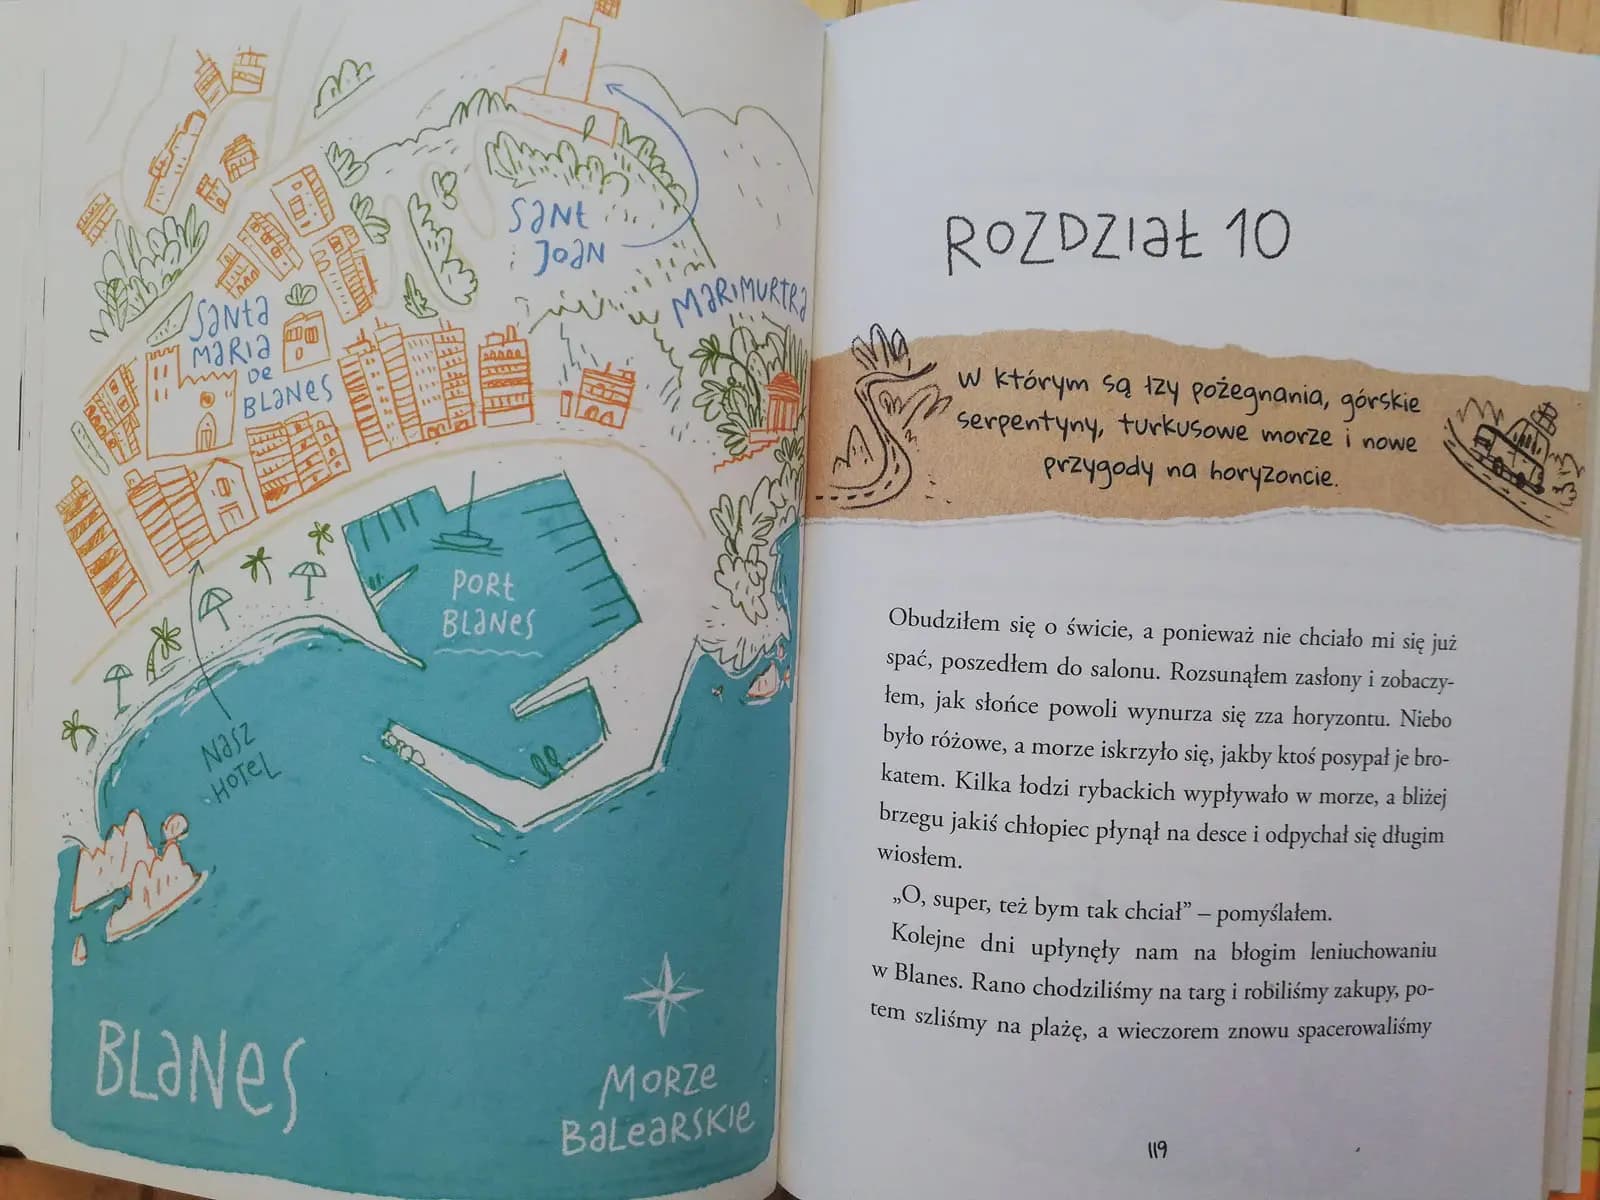 SANT
JOAN
MARIMURTRA
SANTA
MARIA
DE
BLANES
PORT
BLANES
NASZ
HOTEL
BLANES
MORZE
BALEARSKIE
ROZDZIAŁ 10
W którym są łzy pożegnania, górskie
serpentyny, turkusowe morze i nowe
przygody na horyzoncie.
Obudziłem się o świcie, a ponieważ nie chciało mi się już
spać, poszedłem do salonu. Rozsunąłem zasłony i zobaczy-
łem, jak słońce powoli wynurza się zza horyzontu. Niebo
było różowe, a morze iskrzyło się, jakby ktoś posypał je bro-
katem. Kilka łodzi rybackich wypływało w morze, a bliżej
brzegu jakiś chłopiec płynął na desce i odpychał się długim
wiosłem.
„O, super, też bym tak chciał” – pomyślałem.
Kolejne dni upłynęły nam na błogim leniuchowaniu
w Blanes. Rano chodziliśmy na targ i robiliśmy zakupy, po-
tem szliśmy na plażę, a wieczorem znowu spacerowaliśmy
119